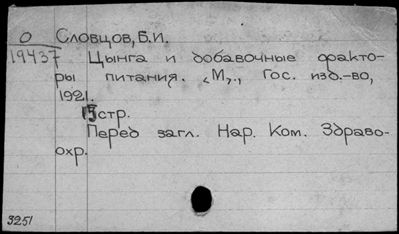 О Словцов, Б.И.
19437 Цынга и добавочные факто-
ры питания. <М>., Гос. изд.-во,
1921.
15стр.
Перед загл. Нар. Ком. Здраво-
охр.
3251